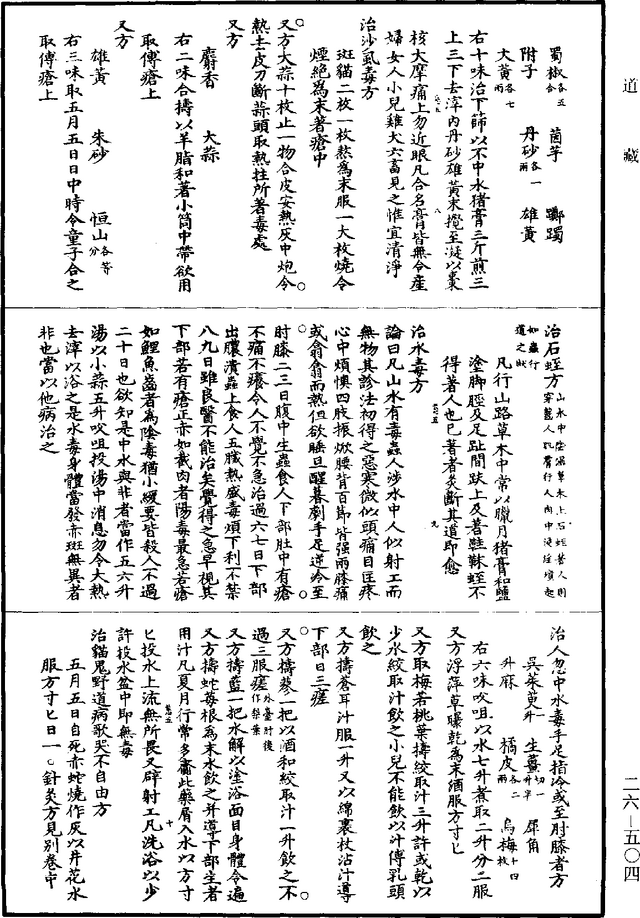 道藏
蜀椒各五合　茵芋　躑躅
附子　丹砂各一兩　雄黃
大黃各七兩
右十味治下篩以不中水猪膏三斤煎三
上三下去滓內丹砂雄黃末攪至凝以棗
核大摩痛上勿近眼凡合名膏皆無令產
婦女人小兒雞大六畜見之惟宜清淨
治沙虱毒方
斑貓二枚一枚熬為末服一大枚燒令
煙絕為末著瘡中
又方大蒜十枚止一物合皮安熱灰中炮令
熱去皮刀斷蒜頭取熱拄所著毒處
又方
麝香　大蒜
右二味合擣以羊脂和著小筒中帶欲用
取傅瘡上
又方
雄黃　朱砂　恒山各等分
右三味取五月五日日中時令童子合之
取傅瘡上
治石蛭方山水中陰濕草木上石蛭著人則穿齧人肌膚行人肉中浸淫墳起如蟲行道之狀
凡行山路草木中常以臘月猪膏和鹽
塗脚脛及足趾間趺上及著鞋靺蛭不
得著人也已著者灸斷其道即愈
治水毒方
論曰凡山水有毒蟲人涉水中人似射工而
無物其診法初得之惡寒微似頭痛目匡疼
心中煩懊四肢振焮腰背百節皆强兩膝痛
或翕翕而熱但欲睡旦醒暮劇手足逆冷至
肘膝二三日腹中生蟲食人下部肚中有瘡
不痛不癢令人不覺不急治過六七日下部
出膿潰蟲上食人五臟熱盛毒煩下利不禁
八九日雖良醫不能治矣覺得之急早視其
下部若有瘡正赤如截肉者陽毒最急若瘡
如鯉魚齒者為陰毒猶小緩要皆殺人不過
二十日也欲知是中水與非者當作五六升
湯以小蒜五升㕮咀投湯中消息勿令大熱
去滓以浴之是水毒身體當發赤斑無異者
非也當以他病治之
治人忽中水毒手足指冷或至肘膝者方
吳茱萸一升　生薑切一升半　犀角
升麻　橘皮各二兩　烏梅十四枚
右六味㕮咀以水七升煮取二升分二服
又方浮萍草曝乾為末酒服方寸匕
又方取梅若桃葉擣絞取汁三升許或乾以
少水絞取汁飲之小兒不能飲以汁傅乳頭
飲之
又方擣蒼耳汁服一升又以綿裹杖沾汁導
下部日三瘥
又方擣蓼一把以酒和絞取汁一升飲之不
過三服瘥外臺肘後作梨葉
又方擣藍一把水解以塗浴面目身體令遍
又方擣蛇莓根為末水飲之并導下部生者
用汁凡夏月行常多齎此藥屑入水以方寸
匕投水上流無所畏又辟射工凡洗浴以少
許投水盆中即無毒
治貓鬼野道病歌哭不自由方
五月五日自死赤蛇燒作灰以井花水
服方寸匕日一○針灸方見別卷中
二六—五〇四